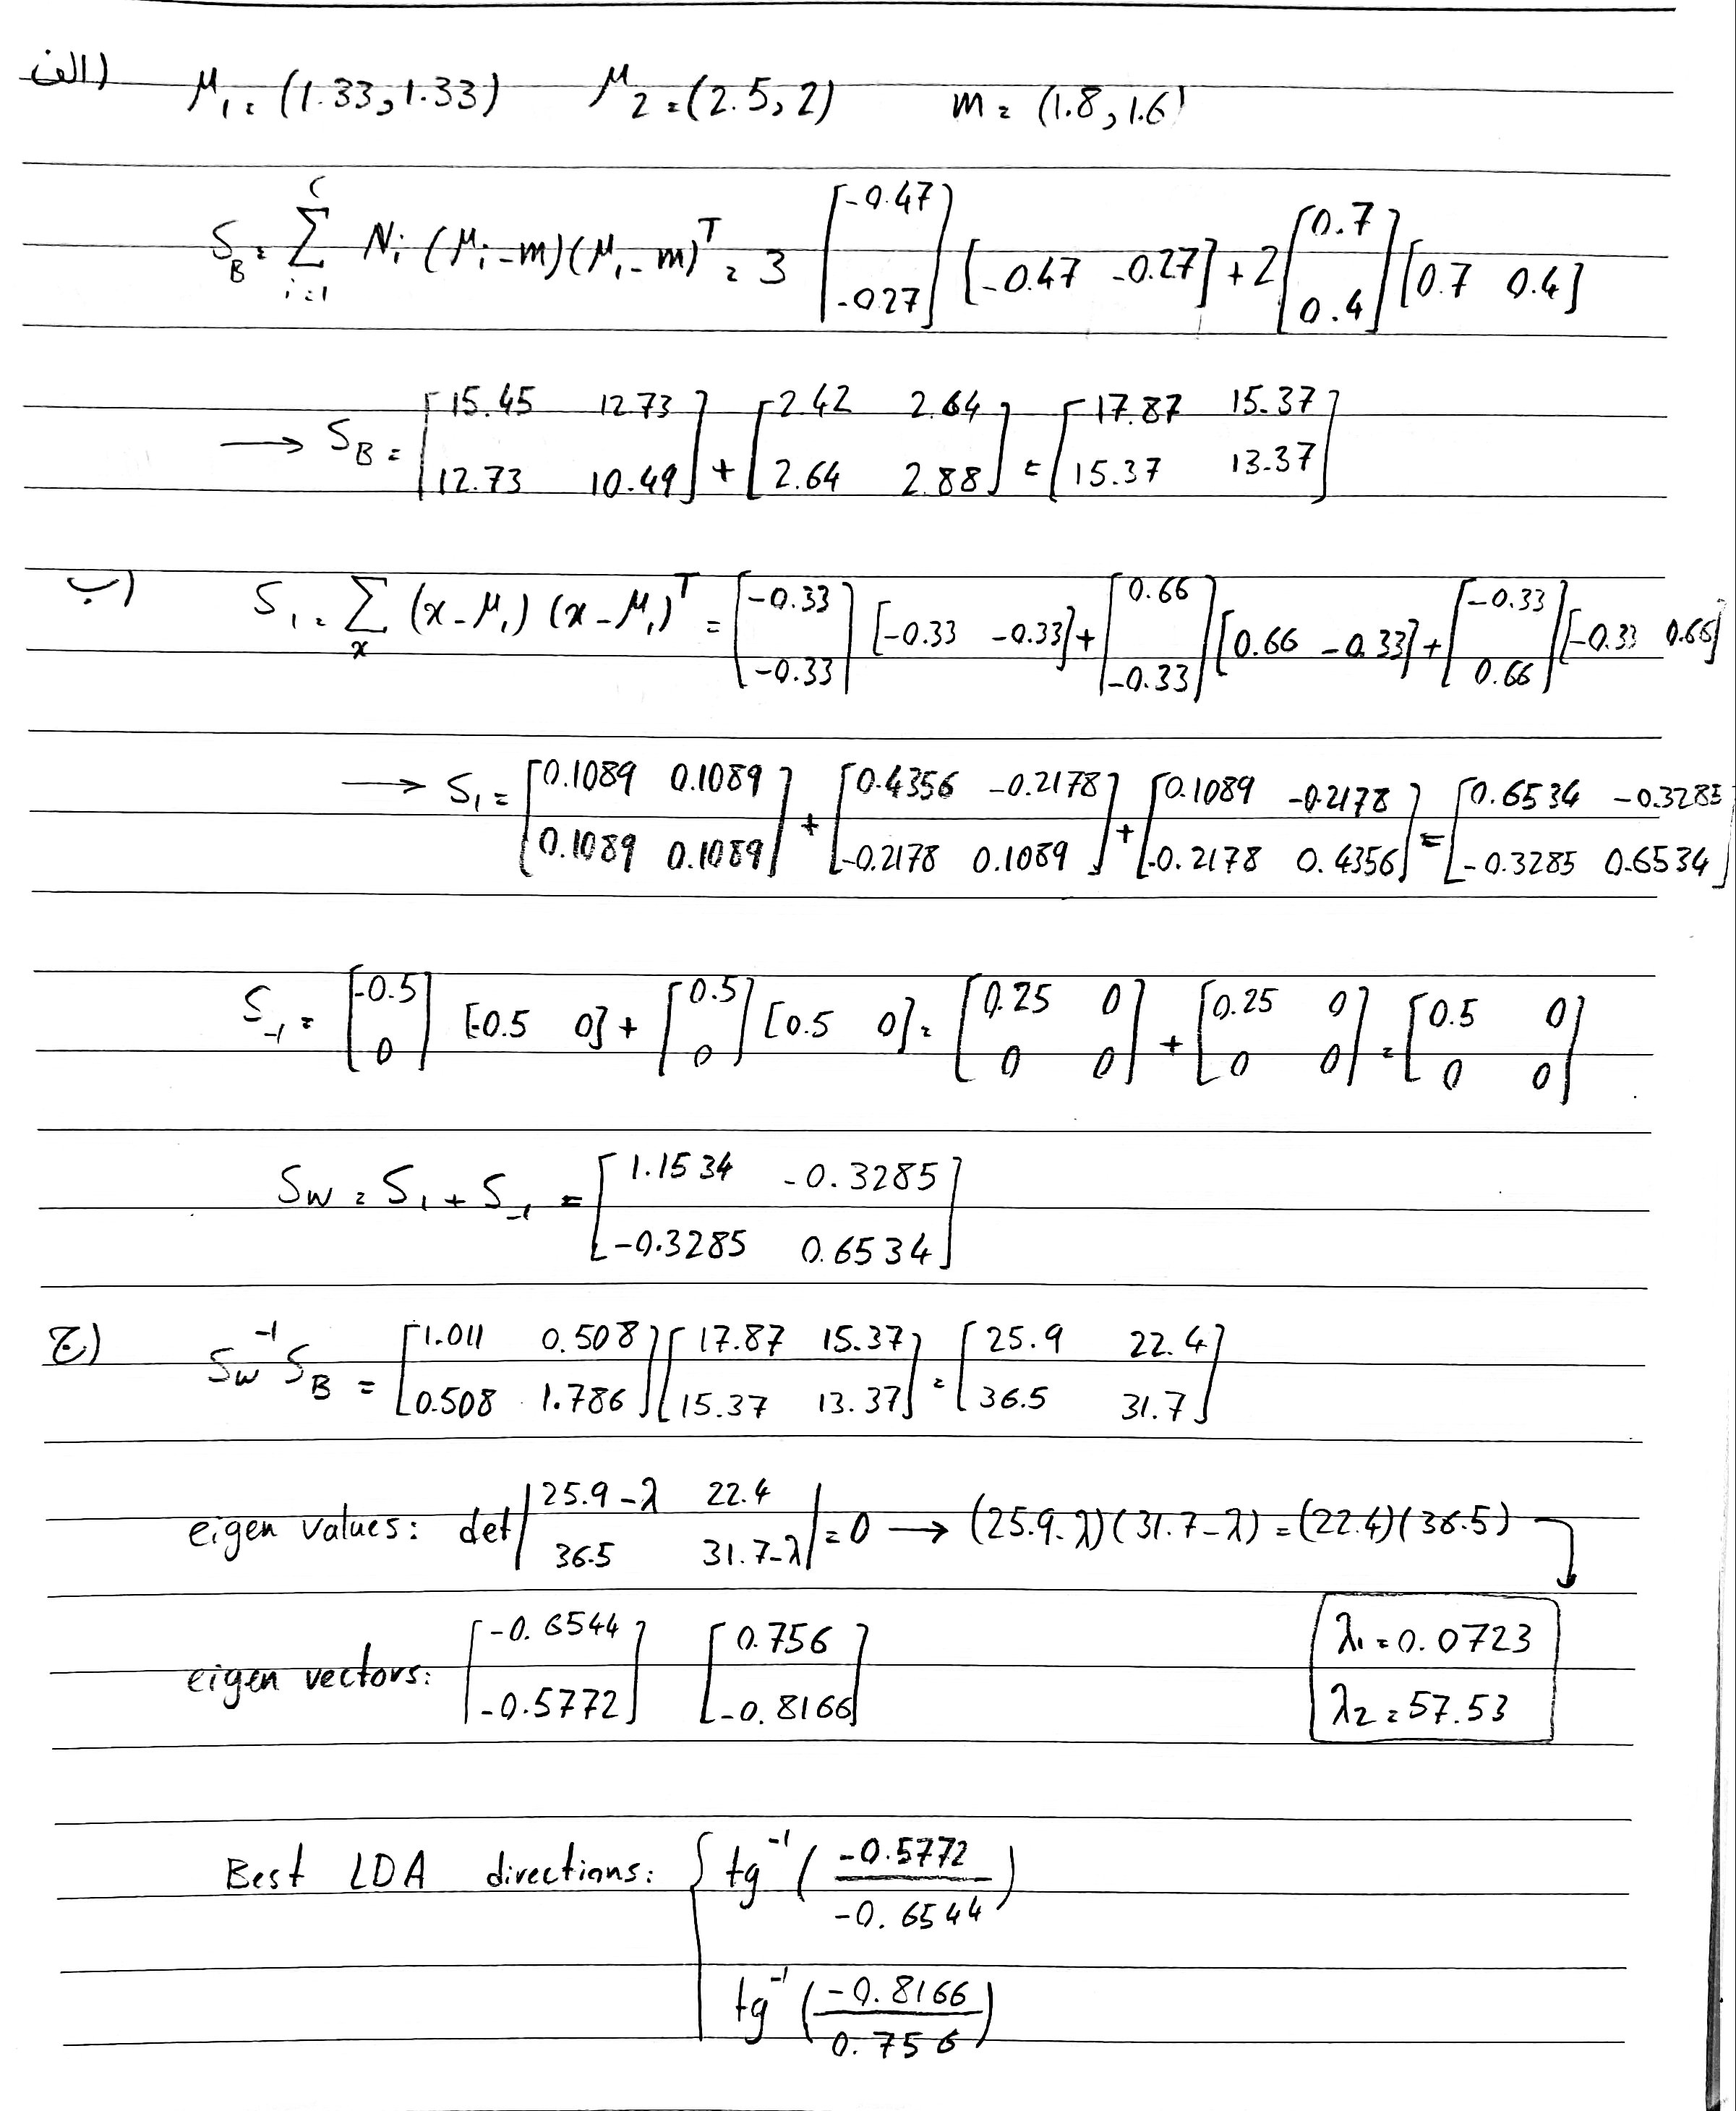 الف)
μ₁ = (1.33, 1.33) μ₂ = (2.5, 2) m = (1.8, 1.6)
S_B = Σ_{i=1}^{C} Nᵢ (μᵢ - m)(μᵢ - m)ᵀ = 3 [-0.47; -0.27] [-0.47 -0.27] + 2 [0.7; 0.4] [0.7 0.4]
→ S_B = [15.45 12.73; 12.73 10.49] + [2.42 2.64; 2.64 2.88] = [17.87 15.37; 15.37 13.37]
ب)
S₁ = Σ_x (x - μ₁)(x - μ₁)ᵀ = [-0.33; -0.33] [-0.33 -0.33] + [0.66; -0.33] [0.66 -0.33] + [-0.33; 0.66] [-0.33 0.66]
→ S₁ = [0.1089 0.1089; 0.1089 0.1089] + [0.4356 -0.2178; -0.2178 0.1089] + [0.1089 -0.2178; -0.2178 0.4356] = [0.6534 -0.3285; -0.3285 0.6534]
S₋₁ = [-0.5; 0] [-0.5 0] + [0.5; 0] [0.5 0] = [0.25 0; 0 0] + [0.25 0; 0 0] = [0.5 0; 0 0]
S_W = S₁ + S₋₁ = [1.1534 -0.3285; -0.3285 0.6534]
ج)
S_W⁻¹ S_B = [1.011 0.508; 0.508 1.786] [17.87 15.37; 15.37 13.37] = [25.9 22.4; 36.5 31.7]
eigen values: det |25.9-λ 22.4; 36.5 31.7-λ| = 0 → (25.9-λ)(31.7-λ) = (22.4)(36.5)
λ₁ = 0.0723
λ₂ = 57.53
eigen vectors: [-0.6544; -0.5772] [0.756; -0.8166]
Best LDA directions: { tg⁻¹ (-0.5772 / -0.6544)
tg⁻¹ (-0.8166 / 0.756)